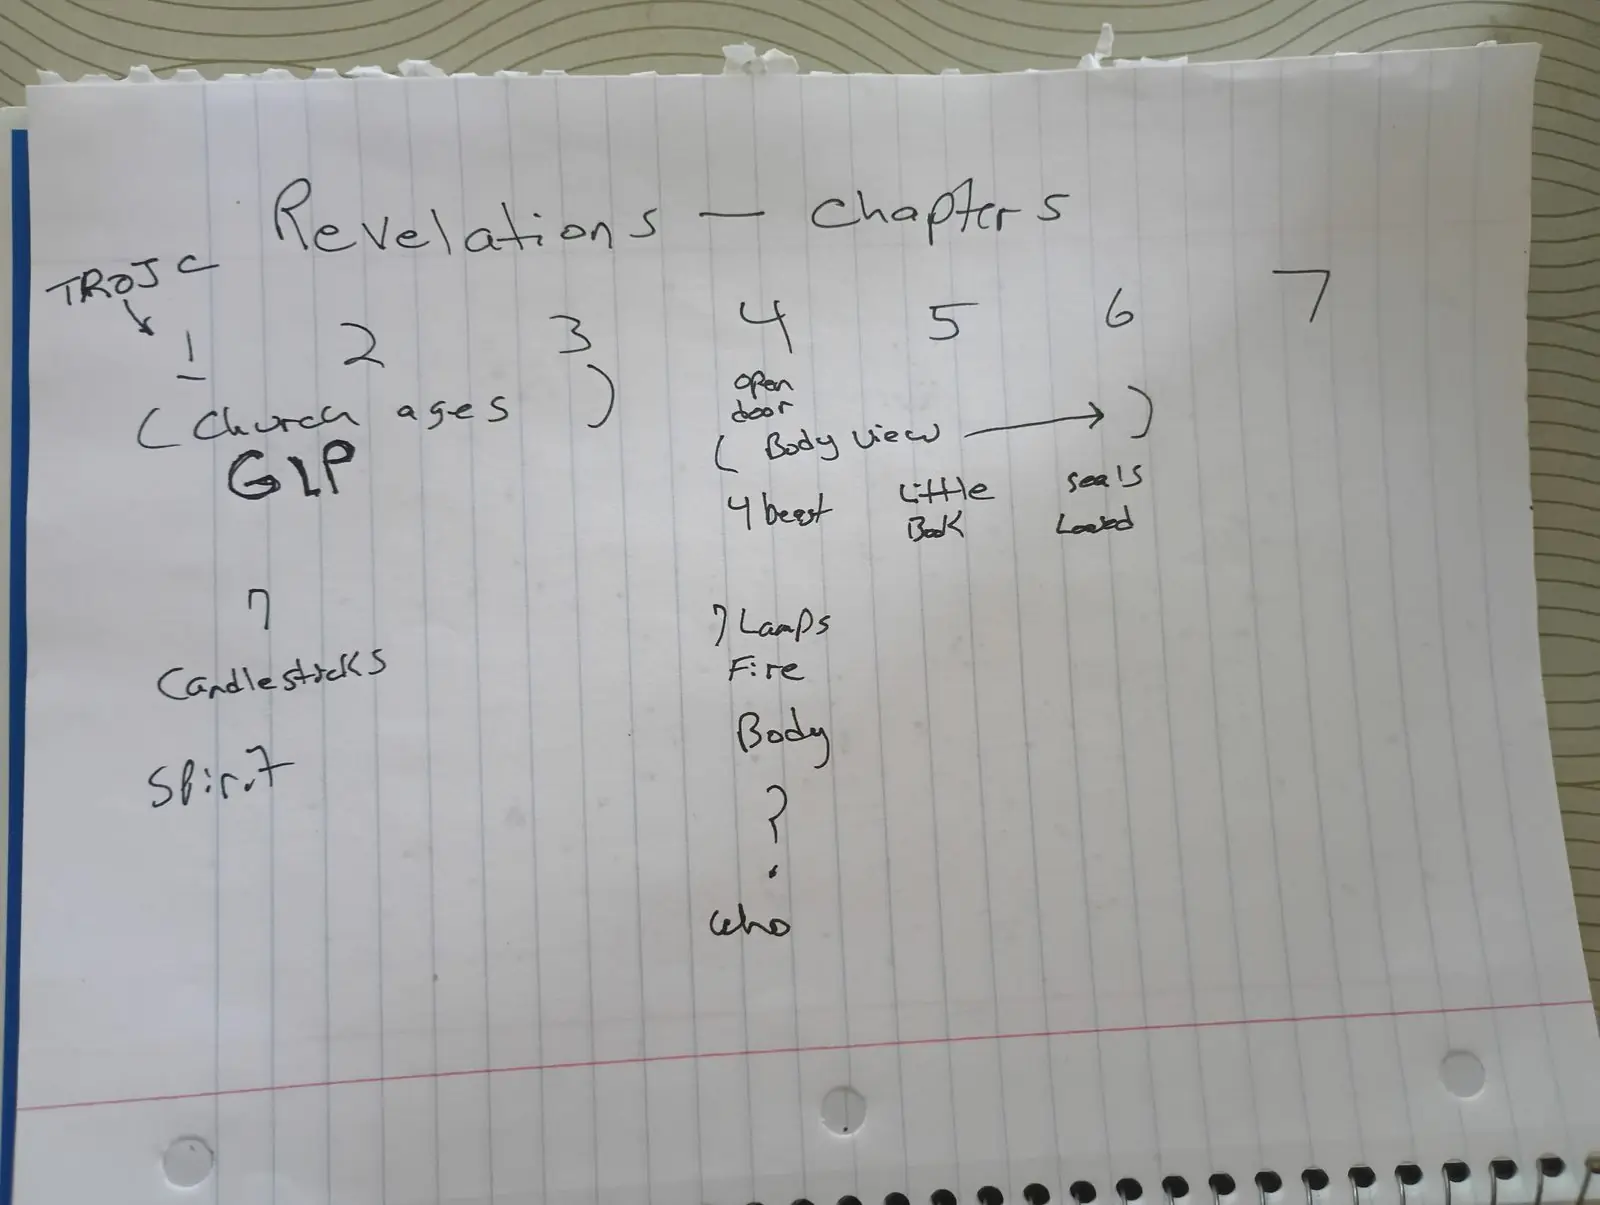 Revelations — Chapters
TROJC
1 2 3 4 5 6 7
open
door
(Church ages) (Body view → )
GIP
4 beast Little Book seals Loosed
7 7 Lamps
Candlesticks Fire
Body
Spirit
?
who